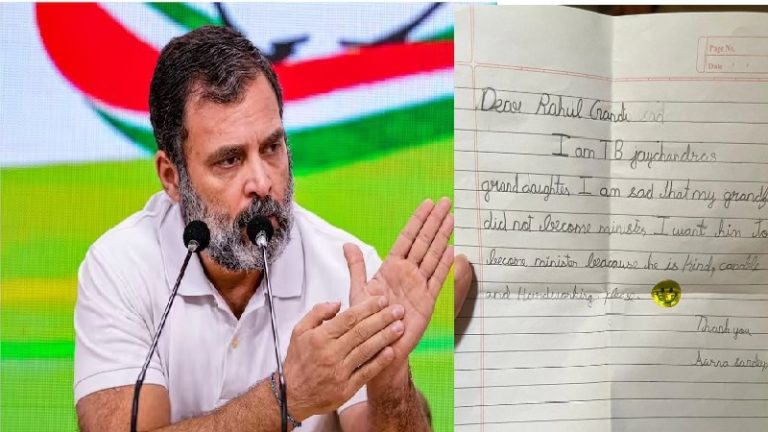 Page No.
Date
Dear Rahul Gandi
I am T B jaychandras
granddaughter I am sad that my grandf
did not become ministr I want him to
become minister beacause he is kind, capable
and Hardworking please
Thank you
Aarna sandeep